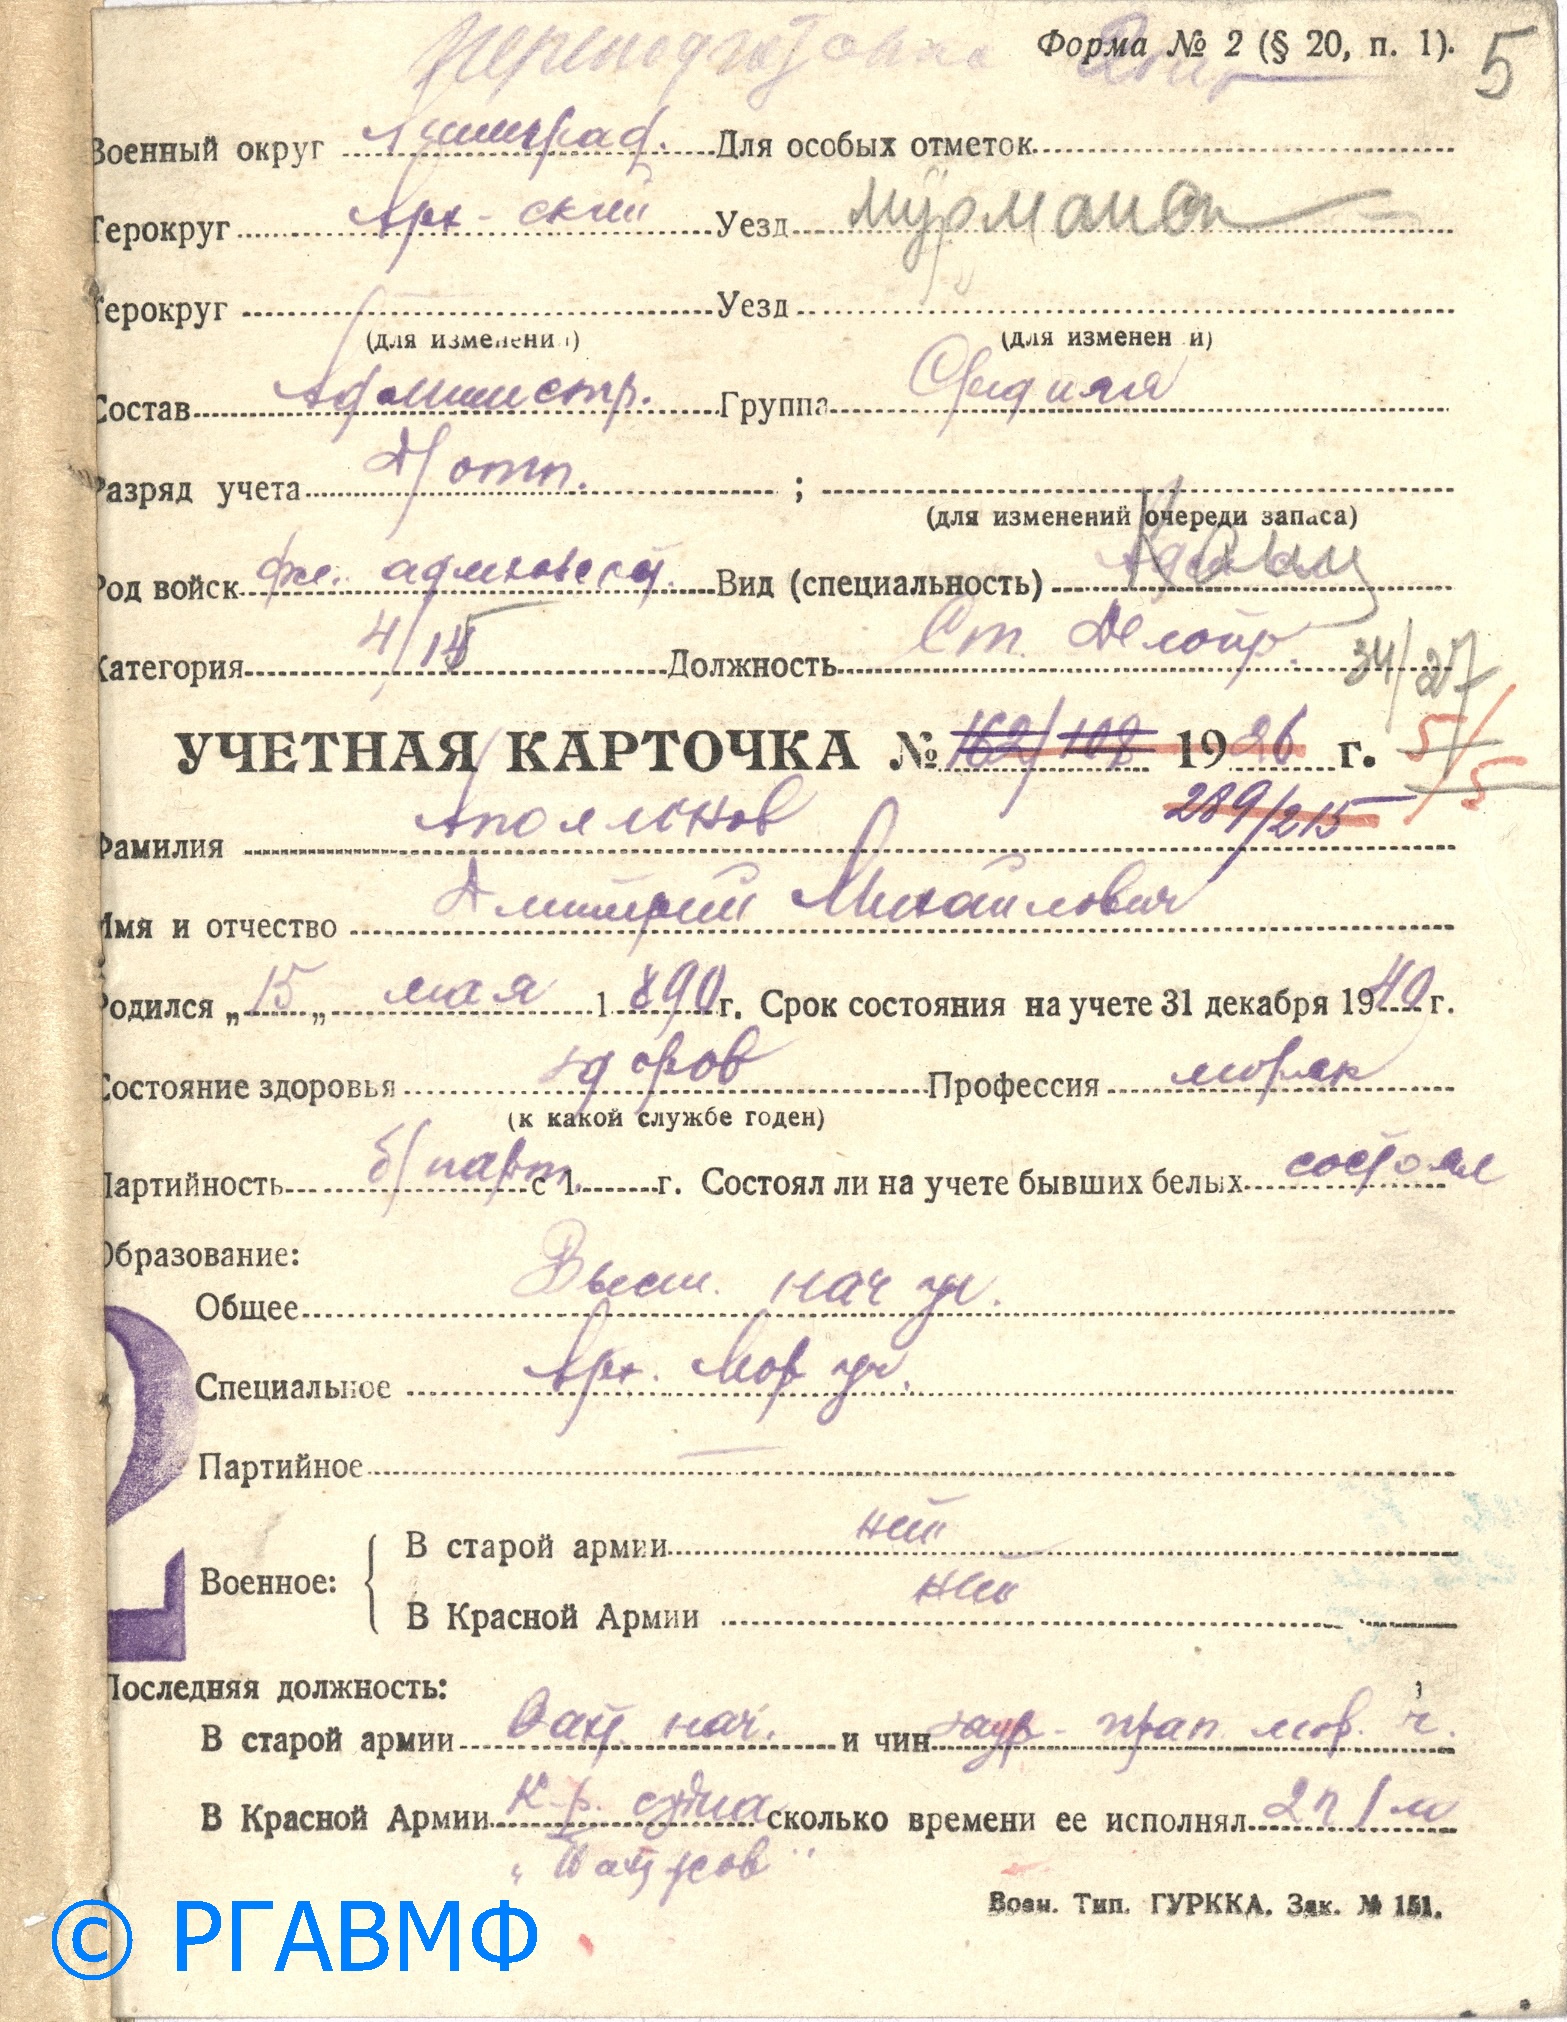 Форма № 2 (§ 20, п. 1). 5
Военный округ Ленинград. Для особых отметок
Терокруг Арх-ский Уезд Мурманск
Терокруг Уезд
(для изменений) (для изменений)
Состав Администр. Группа Средняя
Разряд учета ;
(для изменений очереди запаса)
Род войск Вид (специальность)
Категория 4/ Должность Ст. Делопр. 34/27
УЧЕТНАЯ КАРТОЧКА № 162/108 1926 г. 5/5
289/215
Фамилия Аполлонов
Имя и отчество Дмитрий Михайлович
Родился „15„ мая 1890 г. Срок состояния на учете 31 декабря 1940 г.
Состояние здоровья здоров Профессия моряк
(к какой службе годен)
Партийность б/парт. с 1 г. Состоял ли на учете бывших белых состоял
Образование:
Общее Высш. нач уч.
Специальное Арх. Мор уч.
Партийное —
Военное:
В старой армии нет
В Красной Армии нет
Последняя должность:
В старой армии Вахт. нач. и чин заур-прап. мор. ч.
В Красной Армии К-р. судна сколько времени ее исполнял
Воен. Тип. ГУРККА. Зак. № 151.
© РГАВМФ